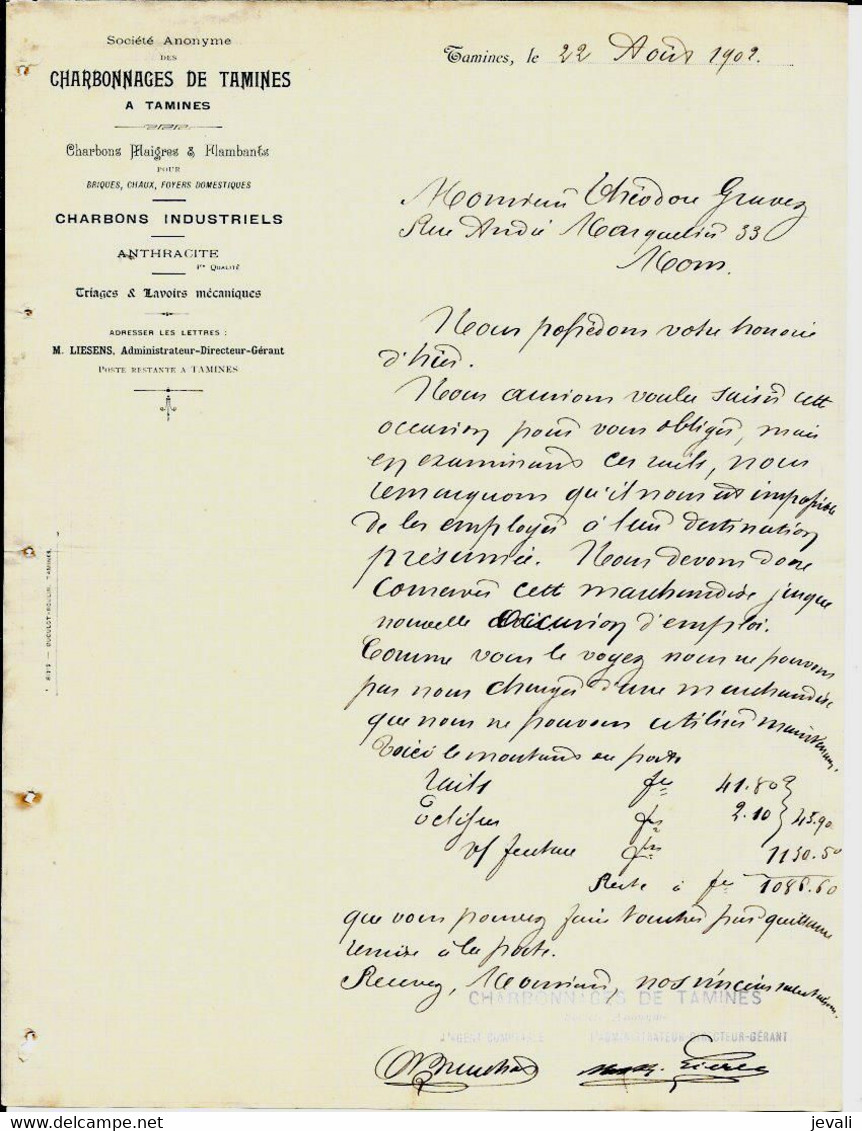 Société Anonyme
DES
CHARBONNAGES DE TAMINES
A TAMINES
Charbons Maigres & Flambants
POUR
BRIQUES, CHAUX, FOYERS DOMESTIQUES
CHARBONS INDUSTRIELS
ANTHRACITE
1re QUALITÉ
Triages & Lavoirs mécaniques
ADRESSER LES LETTRES :
M. LIESENS, Administrateur-Directeur-Gérant
POSTE RESTANTE A TAMINES
IMPR. — DUCULOT-ROULIN, TAMINES.
Tamines, le 22 Août 1902.
Monsieur Théodore Gravez
Rue André Masquelier 33
Mons.
Nous possédons votre honorée
d'hier.
Nous aurions voulu saisir cette
occasion pour vous obliger, mais
en examinant ces rails, nous
remarquons qu'il nous est impossible
de les employer à leur destination
présumée. Nous devons donc
conserver cette marchandise jusque
nouvelle occasion d'emploi.
Comme vous le voyez nous ne pouvons
pas nous charger d'une marchandise
que nous ne pouvons utiliser maintenant.
Voici le montant en porte
rails fr 41.80
Eclisses frs 2.10 43.90
v/ facture frs 1130.50
Reste à fr 1086.60
que vous pouvez faire toucher par quittance
remise à la poste.
Recevez, Monsieur, nos sincères salutations.
CHARBONNAGES DE TAMINES
Société Anonyme
L'AGENT COMPTABLE L'ADMINISTRATEUR-DIRECTEUR-GÉRANT
jevali